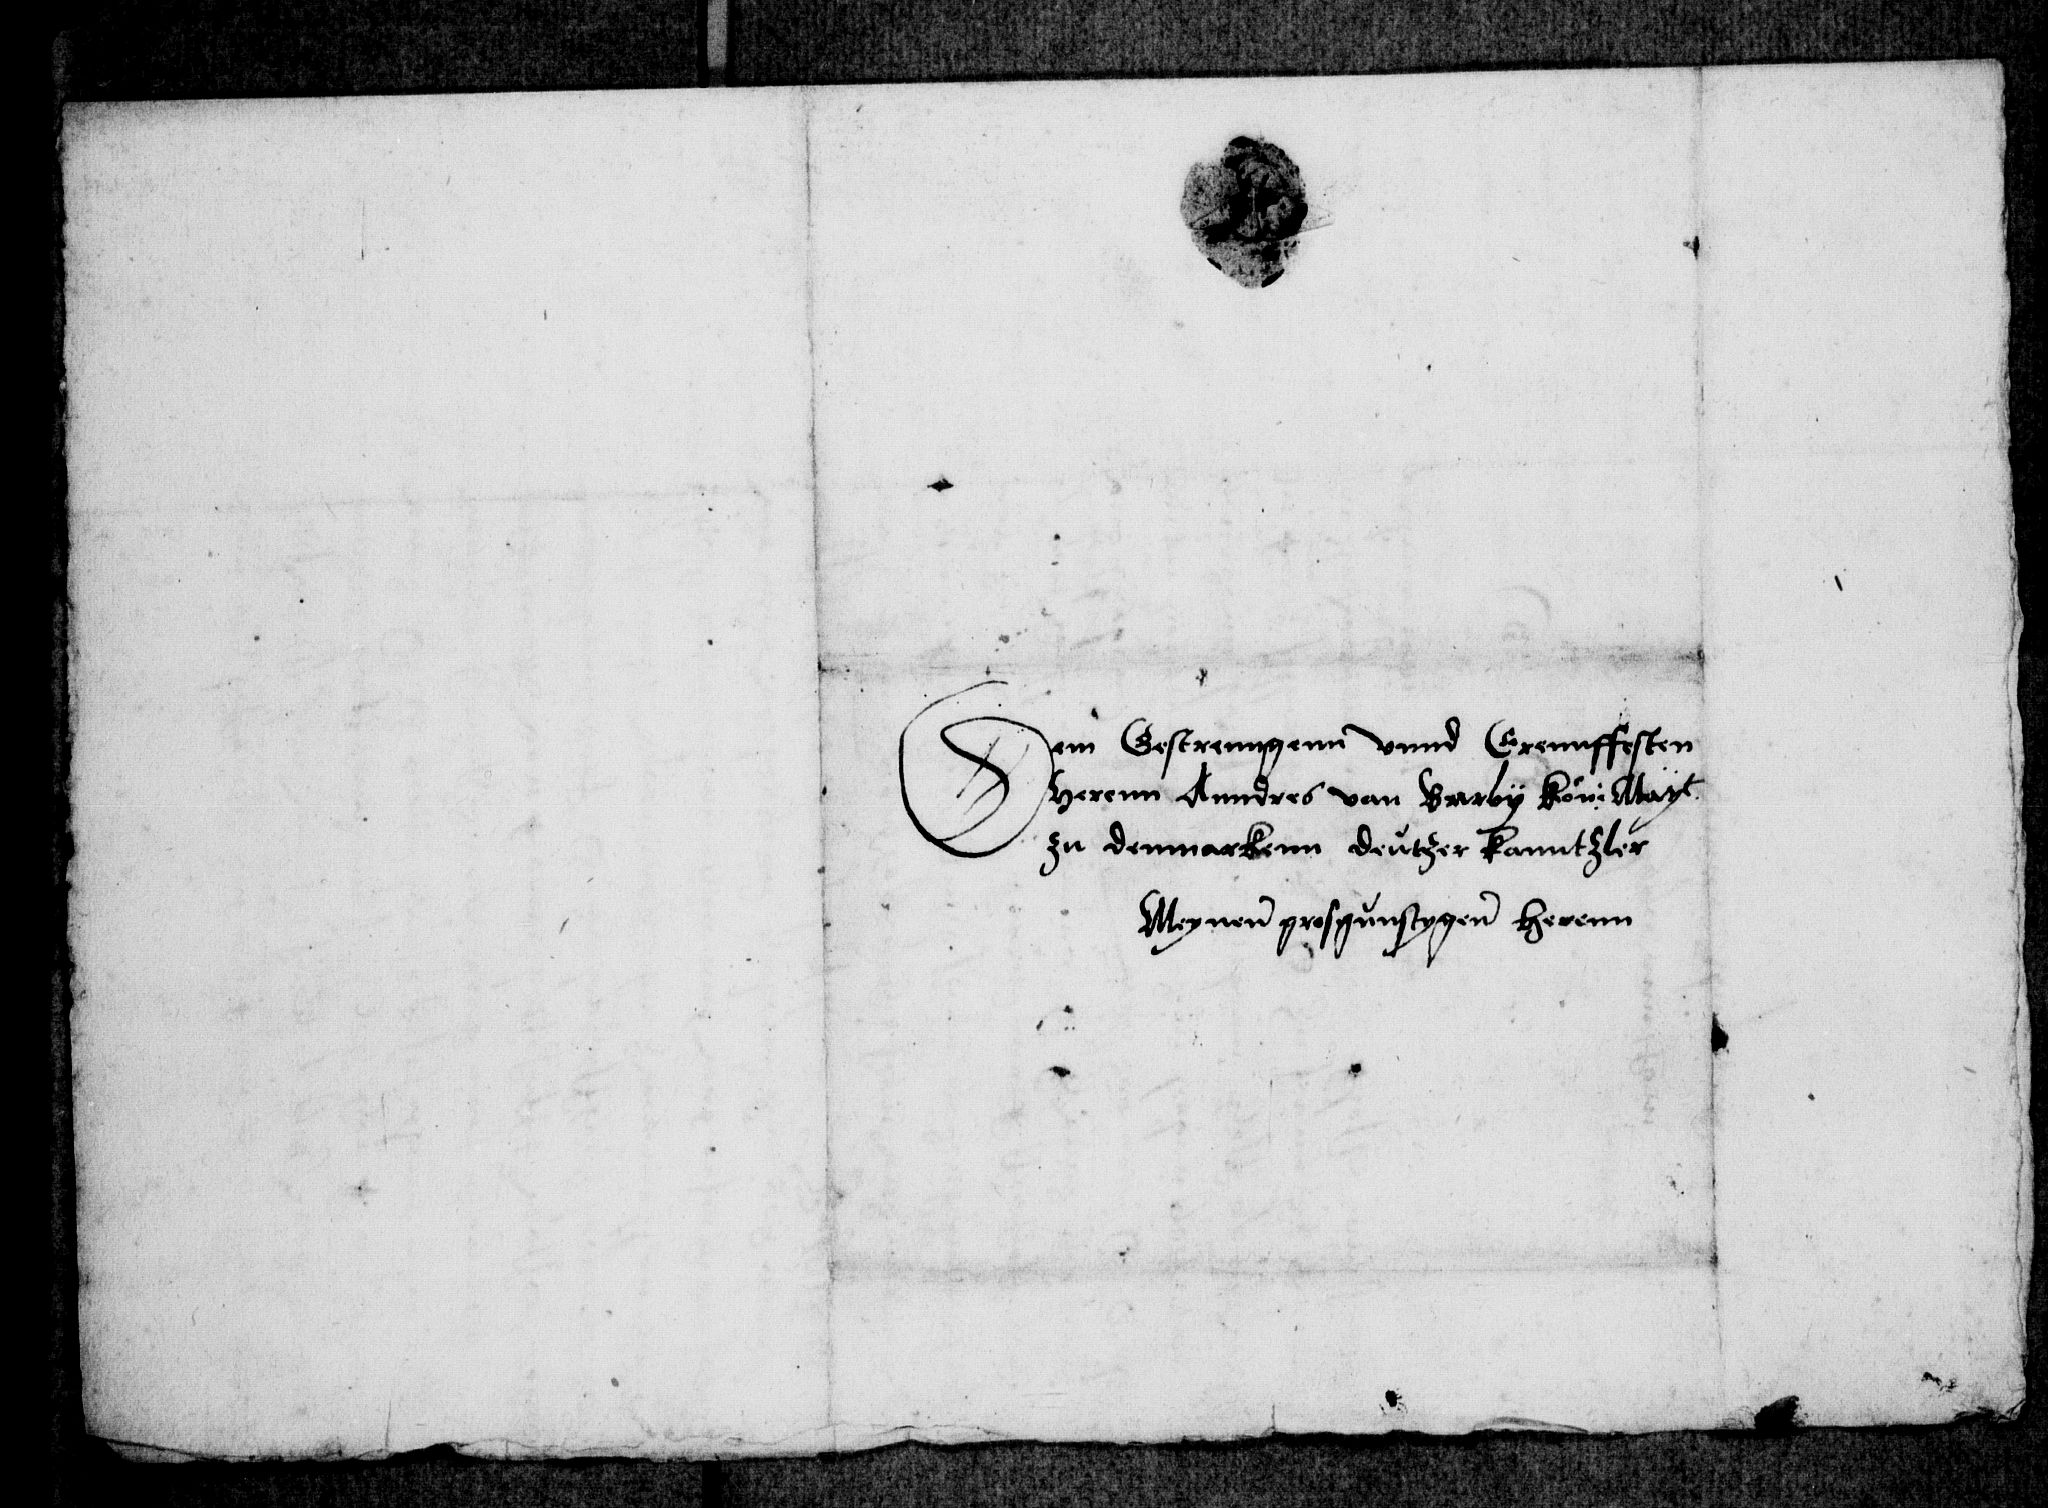 Dem Gestrenngenn vnnd Erennffesten
Herenn Anndres van Barby Kön: Mayt.
zu denmarkenn deutzer kanntzler
Meynen grosgunstygen Herenn